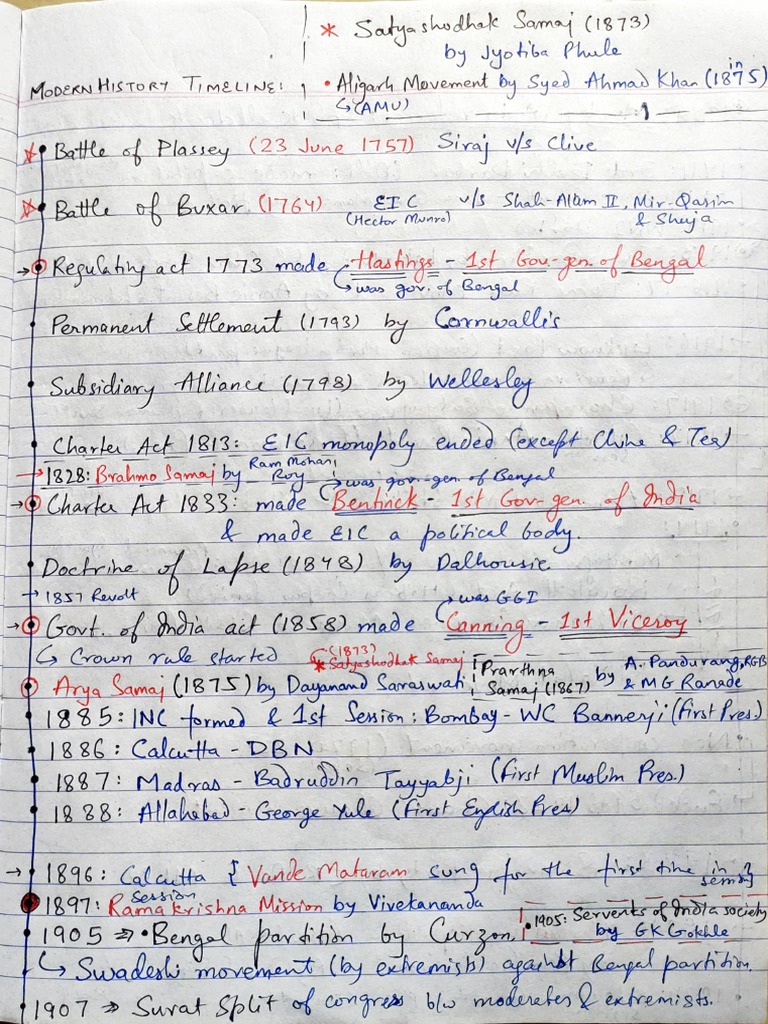 * Satyashodhak Samaj (1873)
by Jyotiba Phule
MODERN HISTORY TIMELINE:
• Aligarh Movement by Syed Ahmad Khan (in 1875)
↳(AMU)
Battle of Plassey (23 June 1757) Siraj v/s Clive
Battle of Buxar (1764) EIC v/s Shah-Alam II, Mir-Qasim
(Hector Munro) & Shuja
→ Regulating act 1773 made Hastings - 1st Gov-gen. of Bengal
↳ was gov. of Bengal
Permanent Settlement (1793) by Cornwallis
Subsidiary Alliance (1798) by Wellesley
Charter Act 1813: EIC monopoly ended (except China & Tea)
→ 1828: Brahmo Samaj by Ram Mohan Roy
was gov-gen. of Bengal
→ Charter Act 1833: made Bentinck - 1st Gov-gen. of India
& made EIC a political body.
Doctrine of Lapse (1848) by Dalhousie
→ 1857 Revolt
was GGI
→ Govt. of India act (1858) made Canning - 1st Viceroy
↳ Crown rule started
(1873)
* Satyashodhak Samaj
Prarthna Samaj (1867) by A. Pandurang, RGB & MG Ranade
Arya Samaj (1875) by Dayanand Saraswati
1885: INC formed & 1st Session: Bombay - WC Bannerji (First Pres)
1886: Calcutta - DBN
1887: Madras - Badruddin Tayyabji (First Muslim Pres.)
1888: Allahabad - George Yule (First English Pres)
→ 1896: Calcutta Session { Vande Mataram sung for the first time in }
1897: Ramakrishna Mission by Vivekananda
1905 ⇒ • Bengal partition by Curzon.
• 1905: Servents of India society
by GK Gokhle
↳ Swadeshi movement (by extremists) against Bengal partition.
1907 ⇒ Surat Split of congress b/w moderates & extremists.